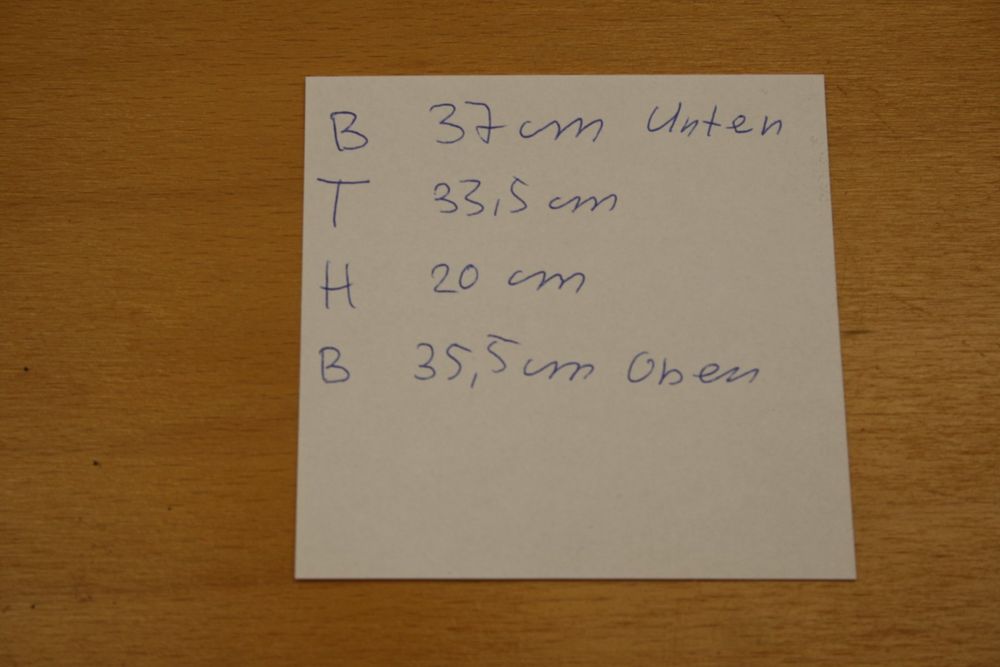 B 37 cm Unten
T 33,5 cm
H 20 cm
B 35,5 cm Oben